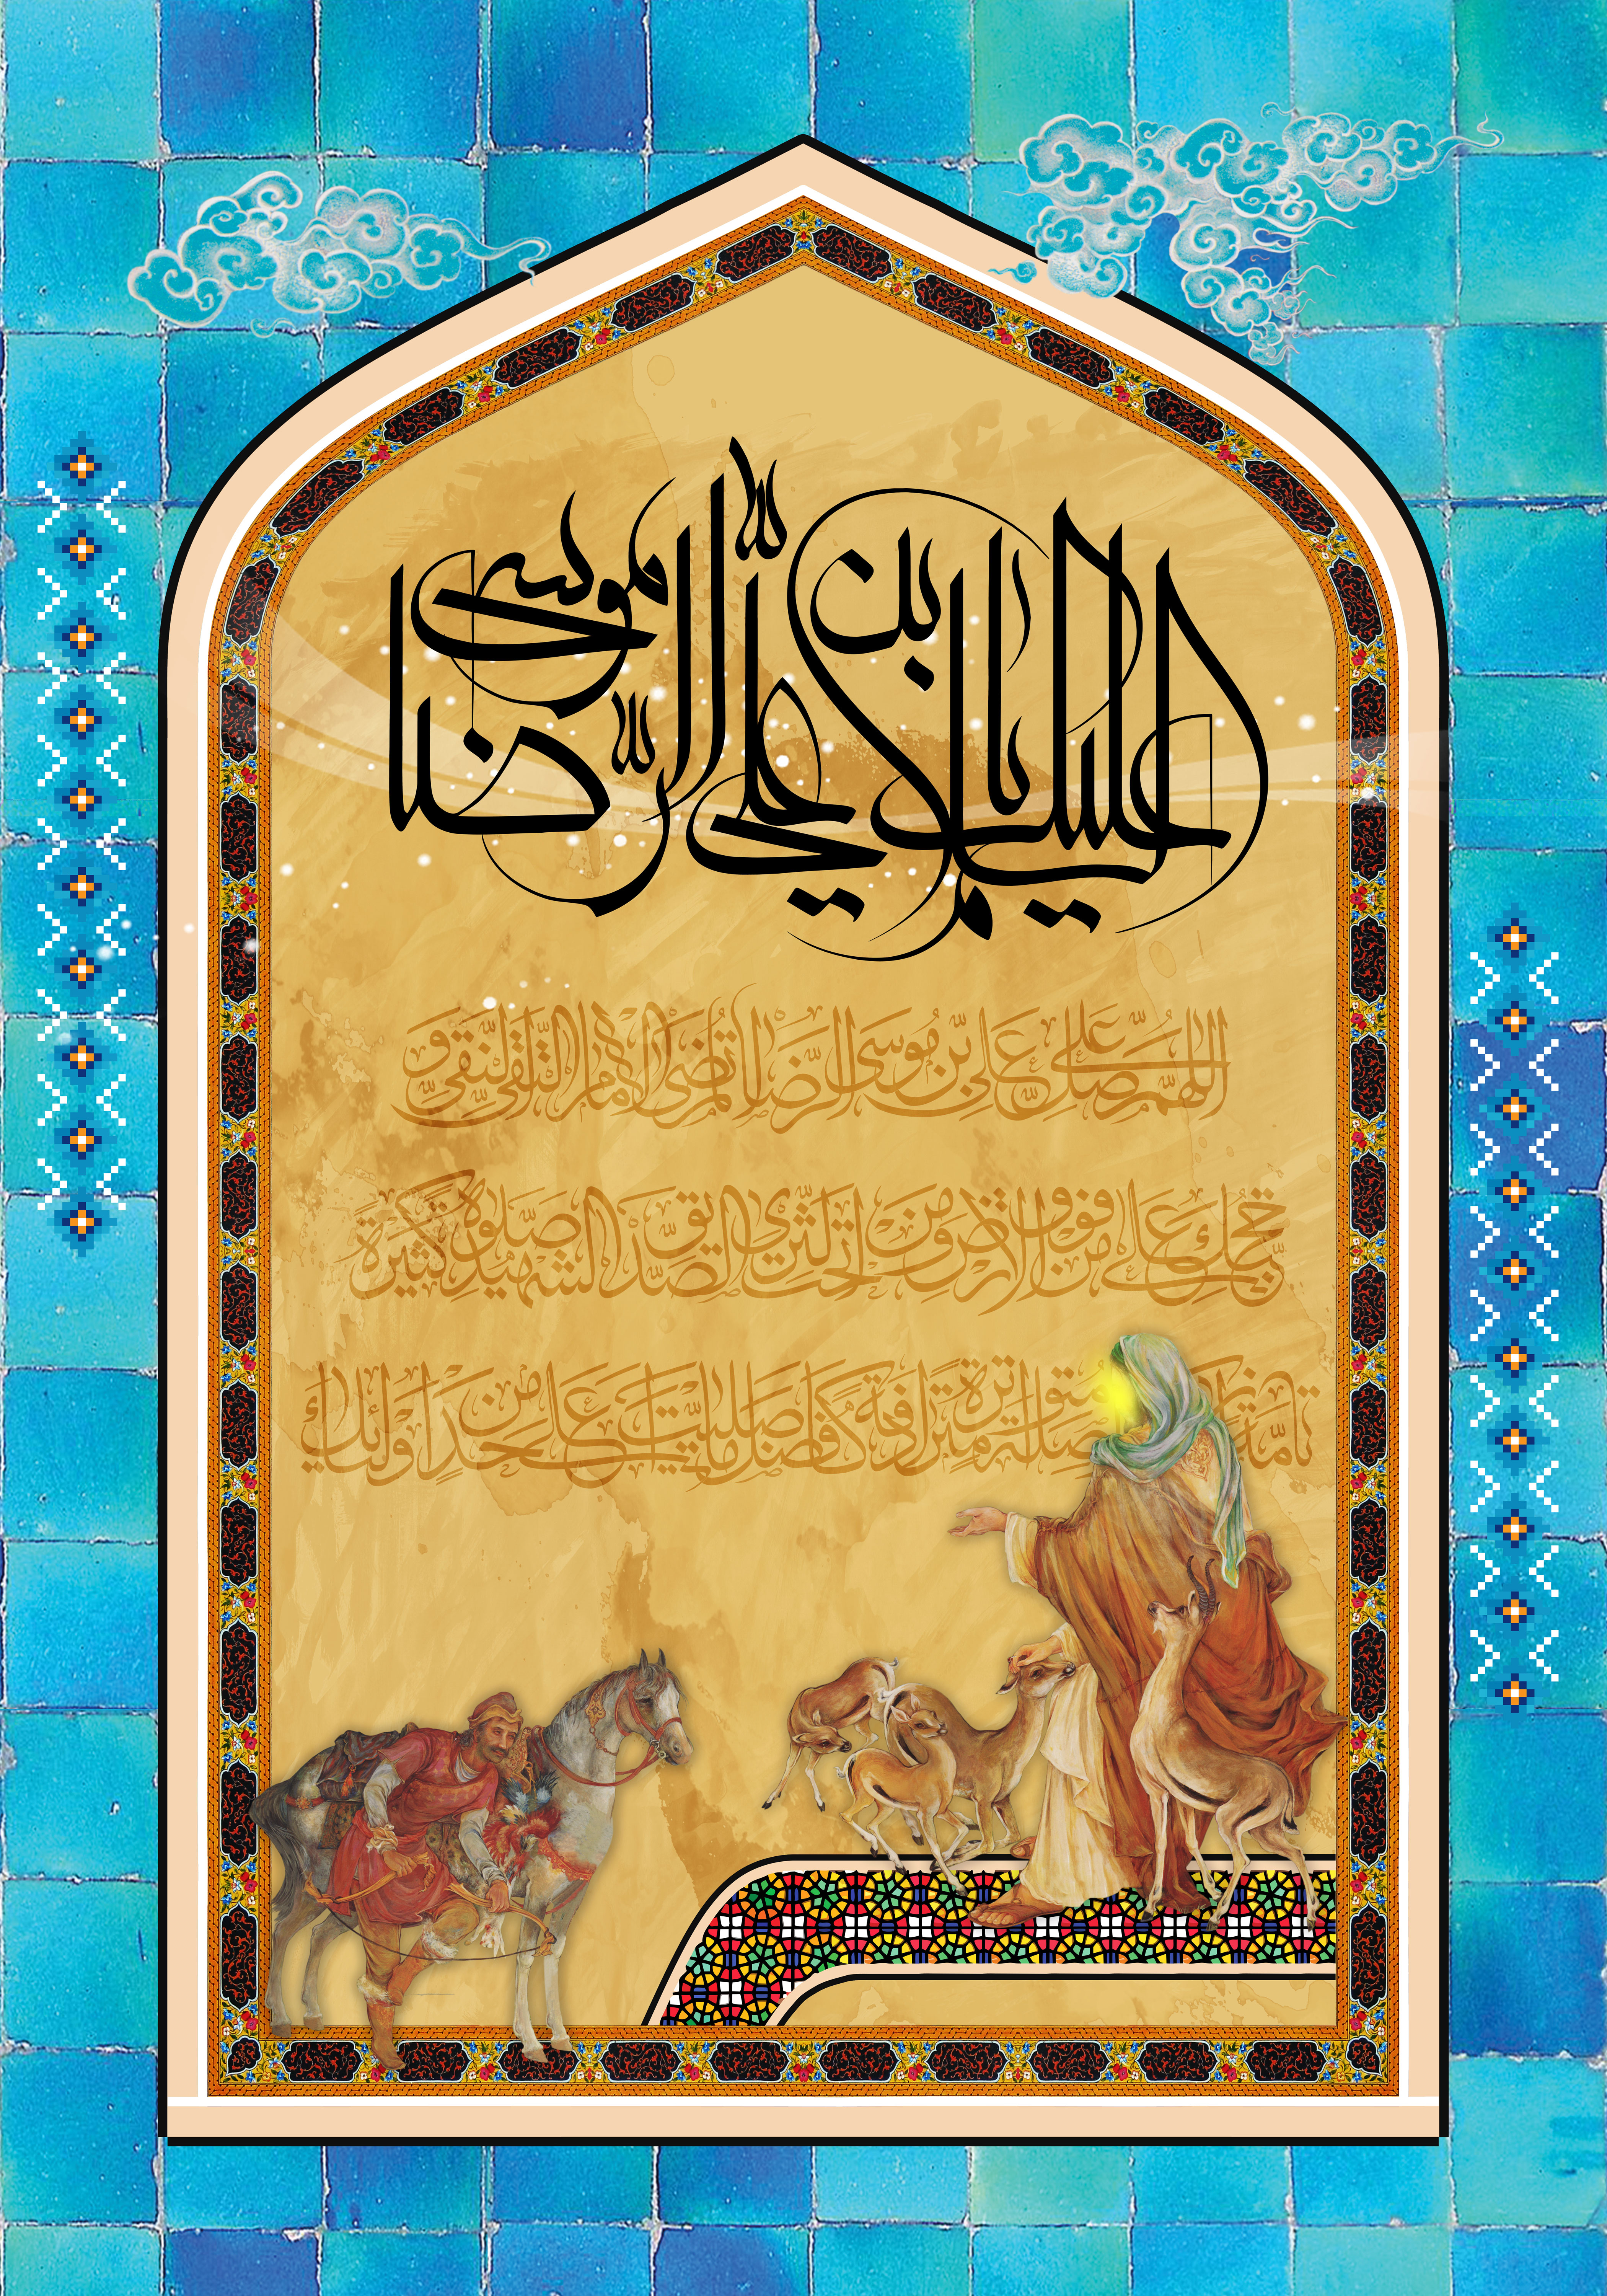 السلام علیک یا علی بن موسی الرضا
اللهم صل علی علی بن موسی الرضا المرتضی الامام التقی النقی و
حجتک علی من فوق الارض و من تحت الثری الصدیق الشهید صلوة کثیرة
تامة متواترة مترادفة کافضل ما صلیت علی احد من اولیائک